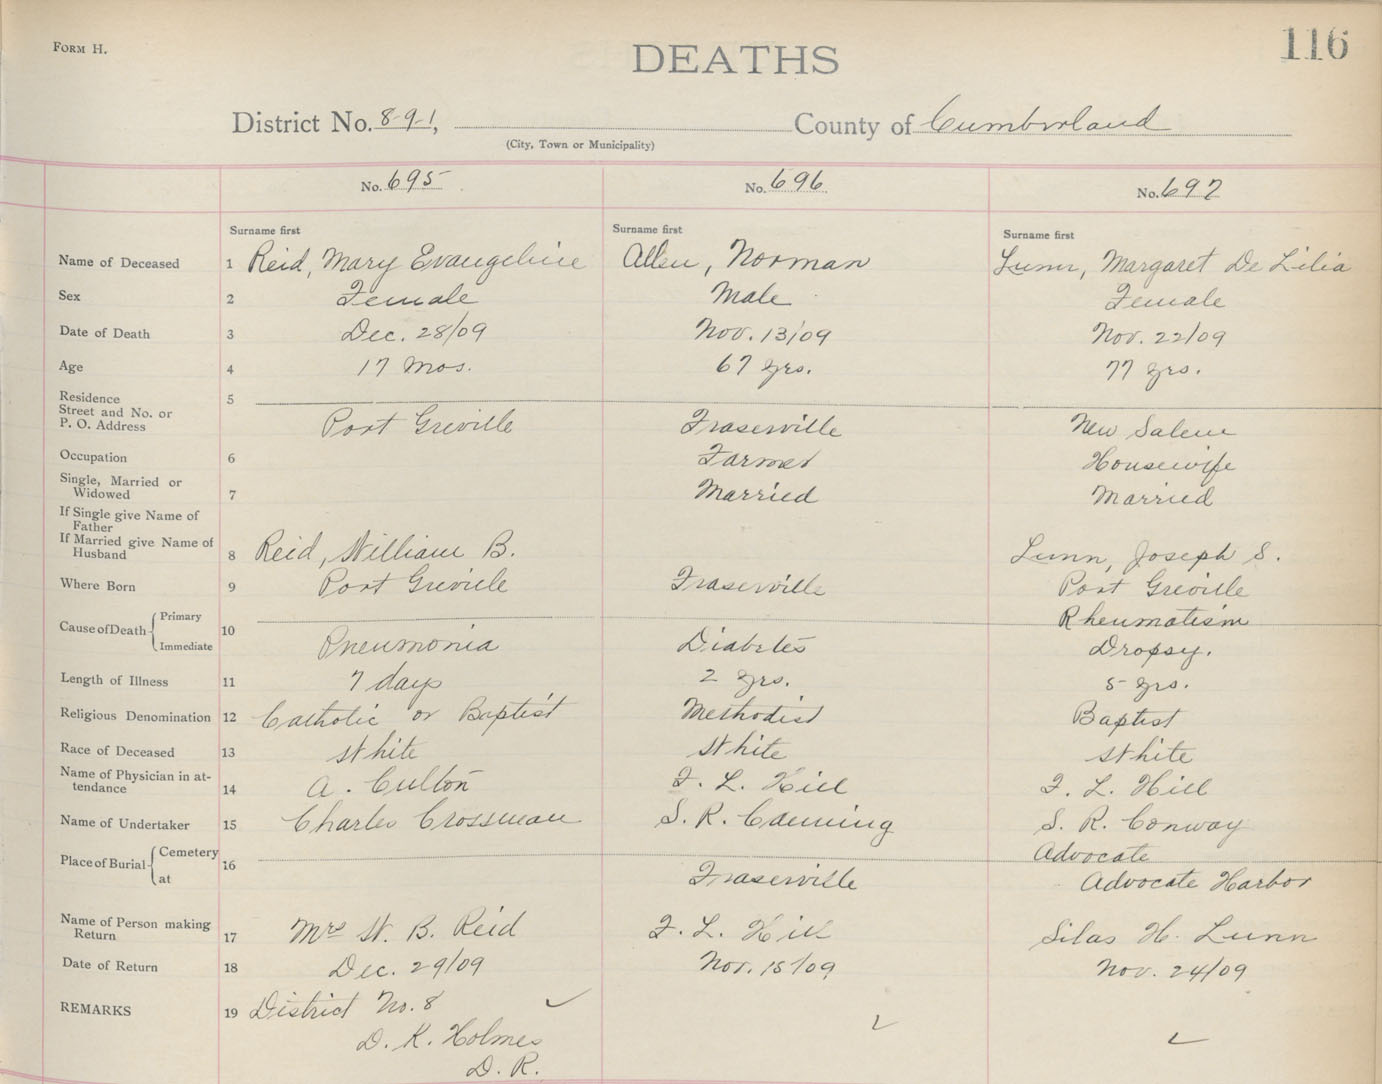 FORM H.
DEATHS
116
District No. 8-9-1, County of Cumberland
(City, Town or Municipality)
No. 695 No. 696 No. 697
Surname first Surname first Surname first
Name of Deceased 1 Reid, Mary Evangeline Allen, Norman Lunn, Margaret De Lilia
Sex 2 Female Male Female
Date of Death 3 Dec. 28/09 Nov. 13/09 Nov. 22/09
Age 4 17 Mos. 67 yrs. 77 yrs.
Residence 5
Street and No. or
P. O. Address Port Greville Fraserville New Salem
Occupation 6 Farmer Housewife
Single, Married or
Widowed 7 Married Married
If Single give Name of
Father
If Married give Name of
Husband 8 Reid, William B. Lunn, Joseph S.
Where Born 9 Port Greville Fraserville Port Greville
Cause of Death Primary 10 Rheumatism
Immediate Pneumonia Diabetes Dropsy.
Length of Illness 11 7 days 2 yrs. 5 yrs.
Religious Denomination 12 Catholic or Baptist Methodist Baptist
Race of Deceased 13 White White White
Name of Physician in at-
tendance 14 A. Culton F. L. Hill F. L. Hill
Name of Undertaker 15 Charles Crossman S. R. S. R. Conway
Place of Burial Cemetery 16 Advocate
at Fraserville Advocate Harbor
Name of Person making
Return 17 Mrs W. B. Reid F. L. Hill Silas H. Lunn
Date of Return 18 Dec. 29/09 Nov. 15/09 Nov. 24/09
REMARKS 19 District No. 8
D. K. Holmes
D. R.